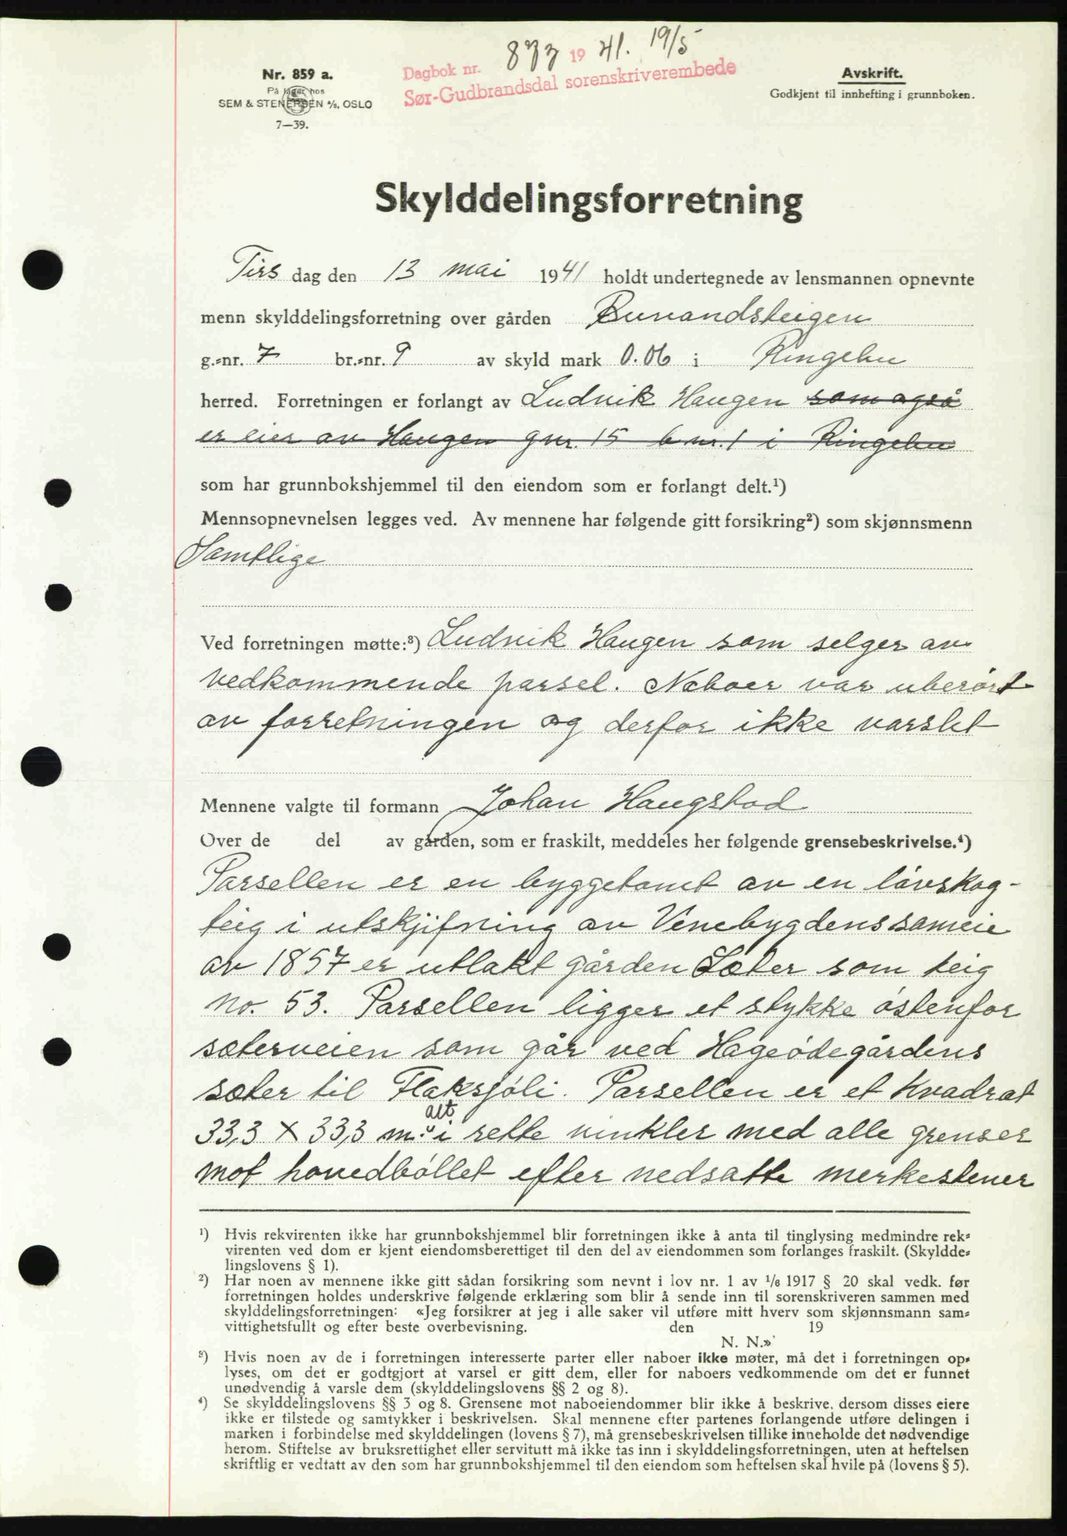 Dagbok nr. 877 19 41. 19/5
Sør-Gudbrandsdal sorenskriverembede
Nr. 859 a.
På lager hos
SEM & STENERSEN A/S, OSLO
7—39.
Avskrift.
Godkjent til innhefting i grunnboken.
Skylddelingsforretning
Tirs dag den 13 mai 1941 holdt undertegnede av lensmannen opnevnte
menn skylddelingsforretning over gården
g.-nr. 7 br.-nr. 9 av skyld mark 0.06 i Ringebu
herred. Forretningen er forlangt av Ludvik Haugen som også
er eier av Haugen gnr. 15 bnr. 1 i Ringebu
som har grunnbokshjemmel til den eiendom som er forlangt delt.¹)
Mennsopnevnelsen legges ved. Av mennene har følgende gitt forsikring²) som skjønnsmenn
Samtlige
Ved forretningen møtte:³) Ludvik Haugen som selger av
vedkommende parsel. Naboer var uberört
av forretningen og derfor ikke varslet
Mennene valgte til formann Johan Haugstad
Over de del av gården, som er fraskilt, meddeles her følgende grensebeskrivelse.⁴)
Parsellen er en byggetomt av en lövskog-
teig i utskjifning av Venebygdens sameie
av 1857 er utlakt gården Sæter som teig
no. 53. Parsellen ligger et stykke östenfor
sæterveien som går ved Hageödegårdens
sæter til Flaksjöli. Parsellen er et kvadrat
alt
33,3 × 33,3 m. i rette vinkler med alle grenser
mot hovedböllet efter nedsatte merkestener
¹) Hvis rekvirenten ikke har grunnbokshjemmel blir forretningen ikke å anta til tinglysing medmindre rek-
virenten ved dom er kjent eiendomsberettiget til den del av eiendommen som forlanges fraskilt. (Skyldde-
lingslovens § 1).
²) Har noen av mennene ikke gitt sådan forsikring som nevnt i lov nr. 1 av 1/6 1917 § 20 skal vedk. før
forretningen holdes underskrive følgende erklæring som blir å sende inn til sorenskriveren sammen med
skylddelingsforretningen: «Jeg forsikrer at jeg i alle saker vil utføre mitt hverv som skjønnsmann sam-
vittighetsfullt og efter beste overbevisning. den 19
N. N.»
³) Hvis noen av de i forretningen interesserte parter eller naboer ikke møter, må det i forretningen op-
lyses, om det er godtgjort at varsel er gitt dem, eller for naboers vedkommende om det er funnet
unødvendig å varsle dem (skylddelingslovens §§ 2 og 8).
⁴) Se skylddelingslovens §§ 3 og 8. Grensene mot naboeiendommer blir ikke å beskrive, dersom disses eiere
ikke er tilstede og samtykker i beskrivelsen. Skal mennene efter partenes forlangende utføre delingen i
marken i forbindelse med skylddelingen (lovens § 7), må grensebeskrivelsen tillike inneholde det nødvendige
herom. Stiftelse av bruksrettighet eller servitutt må ikke tas inn i skylddelingsforretningen, uten at heftelsen
skriftlig er vedtatt av den som har grunnbokshjemmel til den eiendom som heftelsen skal hvile på (lovens § 5).